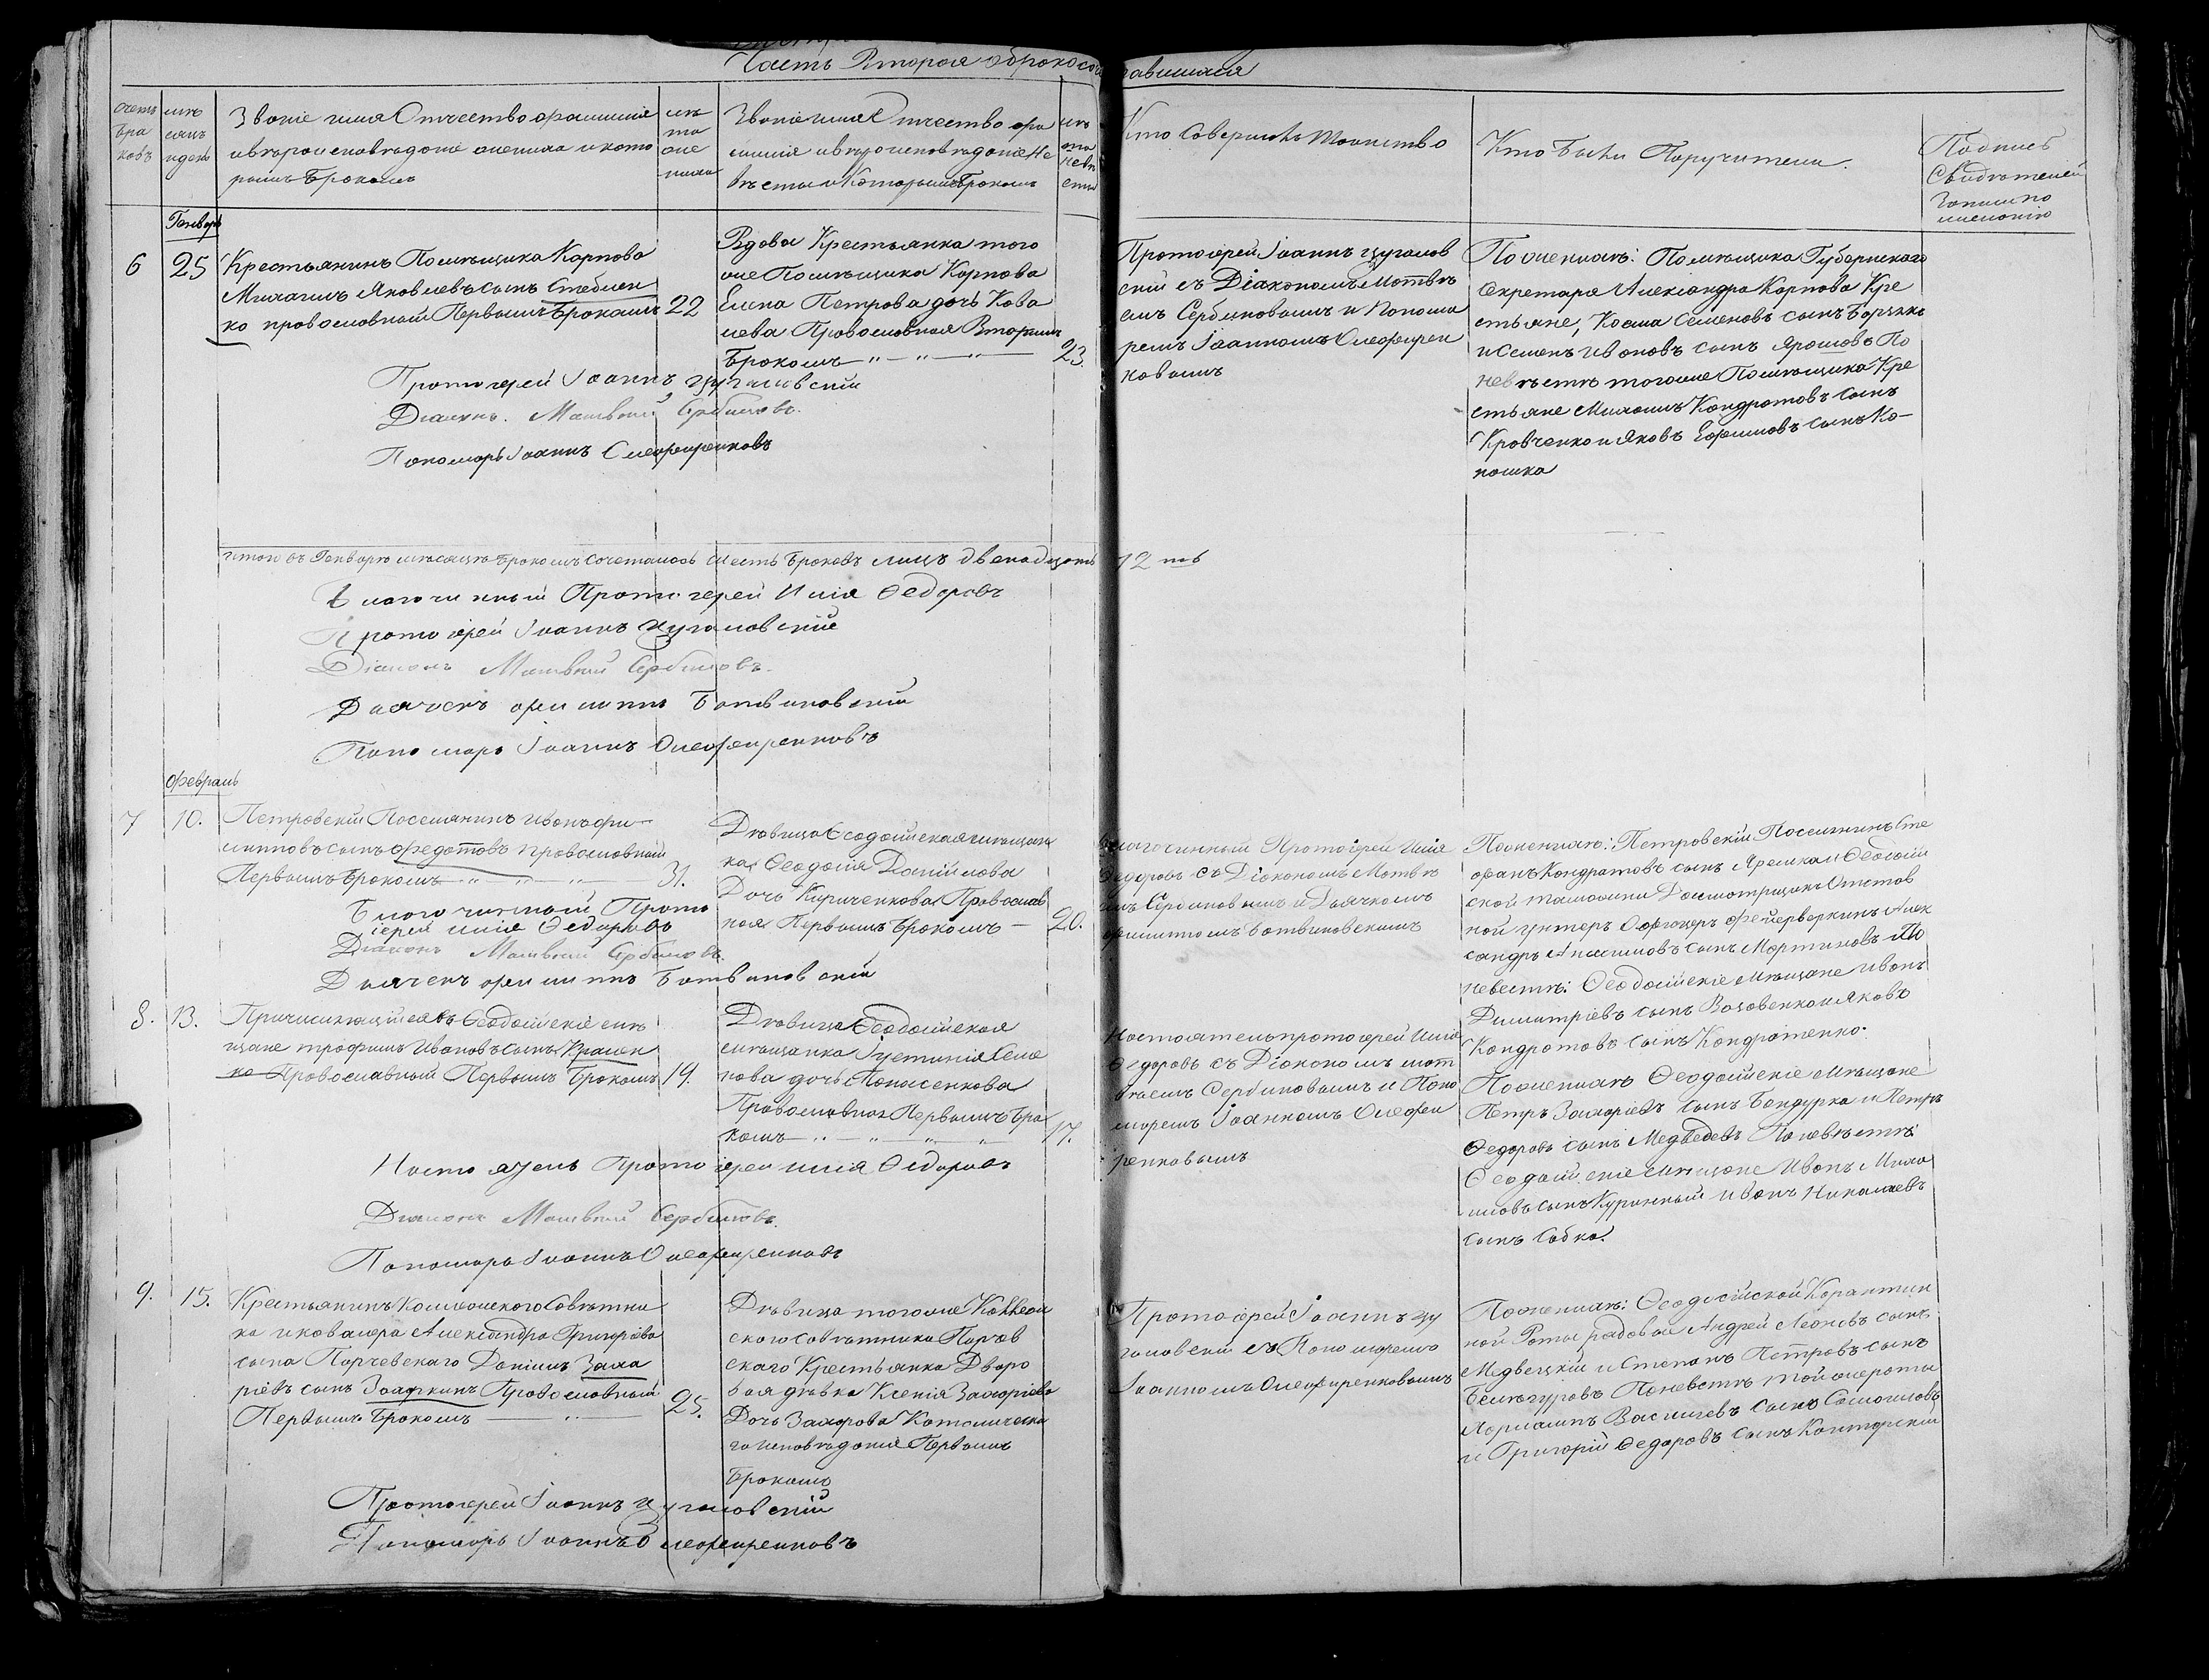 Часть Вторая о бракосочетавшихся
Счетъ браковъ
Мѣсяцъ и день
Званіе имя Отчество фамилія
и вѣроисповѣданіе жениха и кото
рымъ бракомъ
лѣта жениха
Званіе имя Отчество фа
милія и вѣроисповѣданіе Не
вѣсты и Которымъ Бракомъ
лѣта невѣсты
Кто Совершалъ Таинство
Кто были Поручители.
Подпись
Свидѣтелей
Записи по
желанію
Генварь
6
25
Крестьянинъ Помѣщика Карпова
Михаилъ Яковлевъ сынъ Стеблен
ко православный Первымъ Бракомъ
22
Вдова Крестьянка того
же Помѣщика Карпова
Елена Петрова дочь Кова
лева Православная Вторымъ
Бракомъ
23.
Протоіерей Іоаннъ Цугалов
скій съ Діакономъ Матвѣ
емъ Сербиновымъ и Понома
ремъ Іоанномъ Олефирен
ковымъ
По женихѣ: Помѣщика Губернскаго
Секретаря Александра Карпова Кре
стьяне, Косма Семеновъ сынъ
и Семенъ Ивановъ сынъ Ярошовъ По
невѣстѣ того же Помѣщика Кре
стьяне Михаилъ Кондратовъ сынъ
Кравченко и Яковъ Ефимовъ сынъ Ко-
ношка
Протоіерей Іоаннъ Цугаловскій
Діаконъ Матвѣй Сербиновъ.
Пономарь Іоаннъ Олефиренковъ
Итого въ Генварѣ мѣсяцѣ бракомъ сочеталось шесть браковъ лицъ двенадцать 12 ть
Благочинный Протоіерей Илія Ѳедоровъ
Протоіерей Іоаннъ Цугаловскій
Діаконъ Матвѣй Сербиновъ.
Дьячекъ Филиппъ Ботвиновскій
Пономарь Іоаннъ Олефиренковъ
Февраль
7
10.
Петровскій Поселянинъ Иванъ Фи-
липповъ сынъ Федотовъ православный
Первымъ Бракомъ
31.
Дѣвица Ѳеодосійская мѣщан
ка Ѳеодосія Даніилова
Дочь Кириченкова Православ
ная Первымъ Бракомъ
20.
Благочинный Протоіерей Илія
Ѳедоровъ съ Діакономъ Матвѣ
емъ Сербиновымъ и Дьячкомъ
Филиппомъ Ботвиновскимъ
По женихѣ: Петровскій Поселянинъ Сте
фанъ Кондратовъ сынъ Яремка и Ѳеодосій
ской таможни Досмотрщикъ Отстав
ной унтеръ Офицеръ Фейерверкинъ Алек
сандръ Анисимовъ сынъ Мартиновъ По
невестѣ: Ѳеодосійскіе мѣщане Иванъ
Димитріевъ сынъ и Яковъ
Кондратовъ сынъ Кондратенко.
Благочинный Прото
іерей Илія Ѳедоровъ
Діаконъ Матвѣй Сербиновъ.
Дьячекъ Филиппъ Ботвиновскій
8.
13.
Причисляющійся въ Ѳеодосійскіе мѣ
щане Трофимъ Ивановъ сынъ
ко Православный Первымъ Бракомъ
19.
Дѣвица Ѳеодосійская
мѣщанка Іустинія Семе
нова дочь Панасенкова
Православная Первымъ Бра
комъ
17.
Настоятель протоіерей Илія
Ѳедоровъ съ Діакономъ Мат
вѣемъ Сербиновымъ и Поно
маремъ Іоанномъ Олефи
ренковымъ
По женихѣ Ѳеодосійскіе мѣщане
Петръ Захаріевъ сынъ Бандурка и Петръ
Ѳедоровъ сынъ Медведевъ По невѣстѣ
Ѳеодосійскіе мѣщане Иванъ Миха
иловъ сынъ Куринный Иванъ Николаевъ
сынъ Собко.
Настоятель Протоіерей Илія Ѳедоровъ
Діаконъ Матвѣй Сербиновъ.
Пономарь Іоаннъ Олефиренковъ
9.
15.
Крестьянинъ Коллежскаго Совѣтни
ка и кавалера Александра Григорьева
сына Парчевскаго Даніилъ Заха
ріевъ сынъ Православный
Первымъ Бракомъ
25.
Дѣвица того же Коллеж
скаго совѣтника Парчев
скаго Крестьянка Дворо
вая дѣвка Ксенія Захаріева
Дочь Захарова Католическа
го исповѣданія Первымъ
Бракомъ
Протоіерей Іоаннъ Цу
галовскій съ Пономаремъ
Іоанномъ Олефиренковымъ
По женихѣ: Ѳеодосійской Карантин
ной Роты рядовые Андрей Леоновъ сынъ
Медвецкій и Степанъ Петровъ сынъ
По невѣстѣ той же роты
Василіевъ сынъ Самойловъ
и Григорій Ѳедоровъ сынъ Конторскій
Протоіерей Іоаннъ Цугаловскій
Пономарь Іоаннъ Олефиренковъ